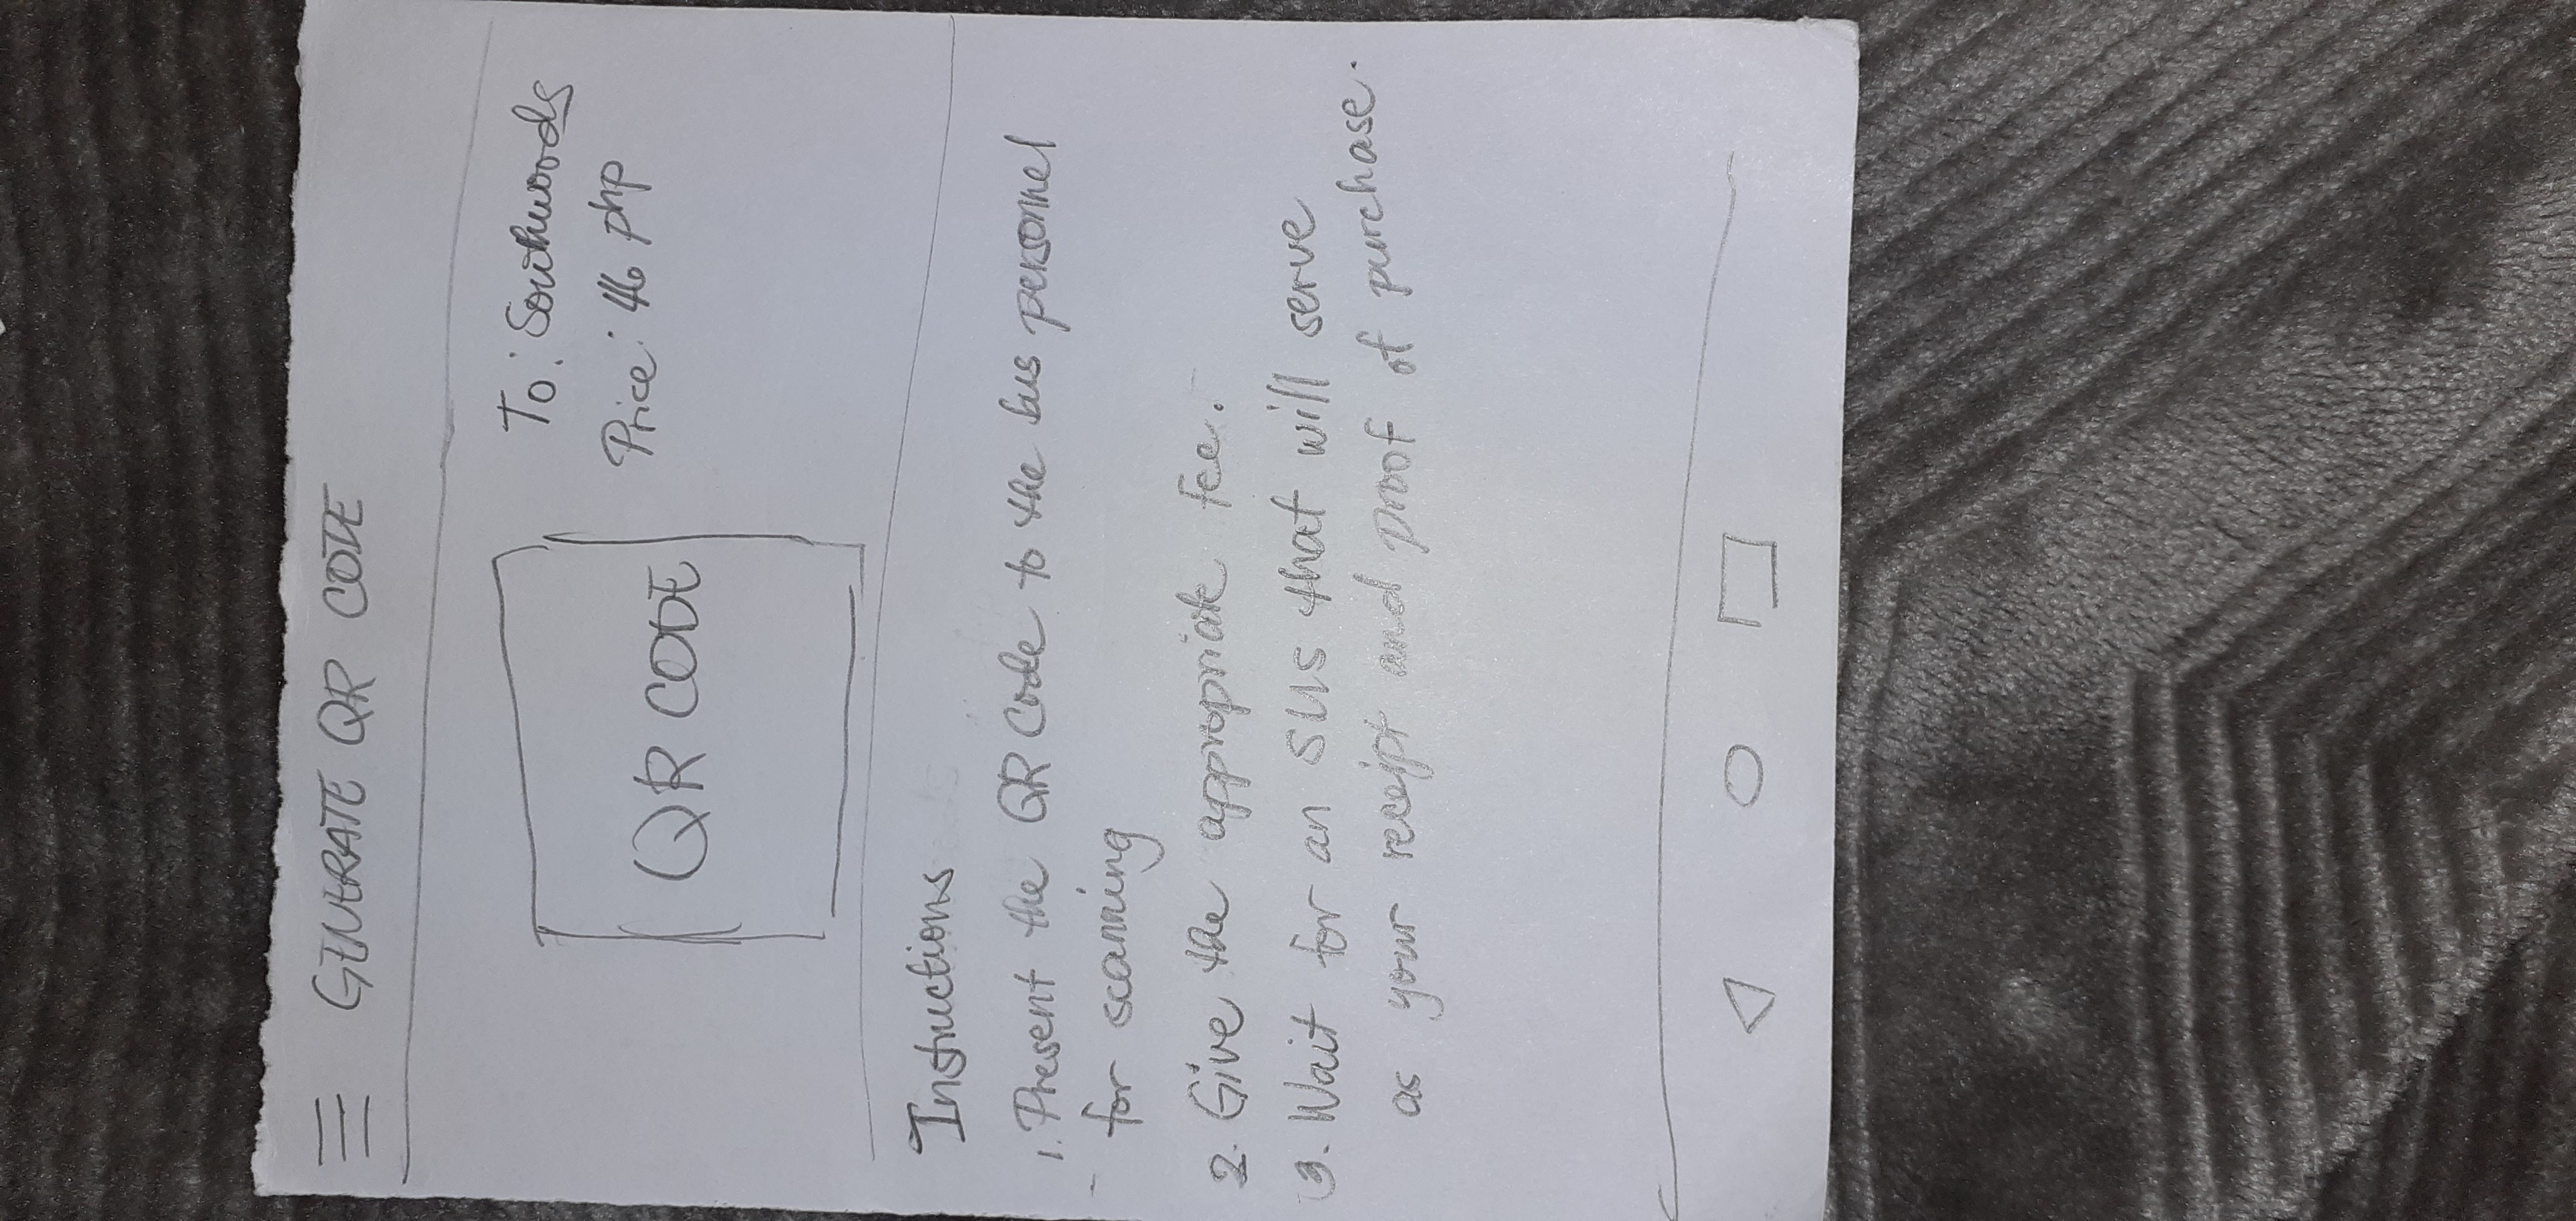 GENERATE QR CODE
To: Southwoods
Price: 46 php
QR CODE
Instructions
1. Present the QR Code to the bus personnel
for scanning
2. Give the appropriate fee.
3. Wait for an SMS that will serve
as your receipt and proof of purchase.